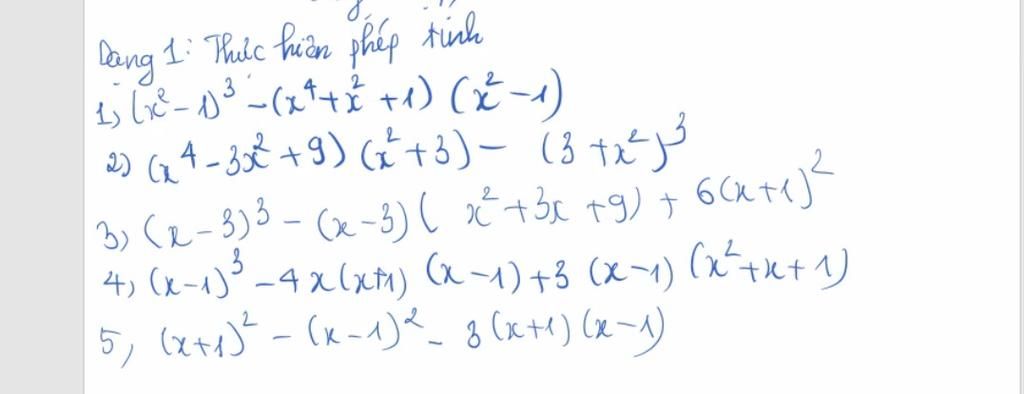 Dạng 1: Thức hiện phép tính
1) (x² - 1)³ - (x⁴ + x² + 1) (x² - 1)
2) (x⁴ - 3x² + 9) (x² + 3) - (3 + x²)³
3) (x - 3)³ - (x - 3) ( x² + 3x + 9) + 6(x + 1)²
4) (x - 1)³ - 4x(x+1) (x - 1) + 3 (x - 1) (x² + x + 1)
5) (x + 1)² - (x - 1)² - 3 (x + 1) (x - 1)